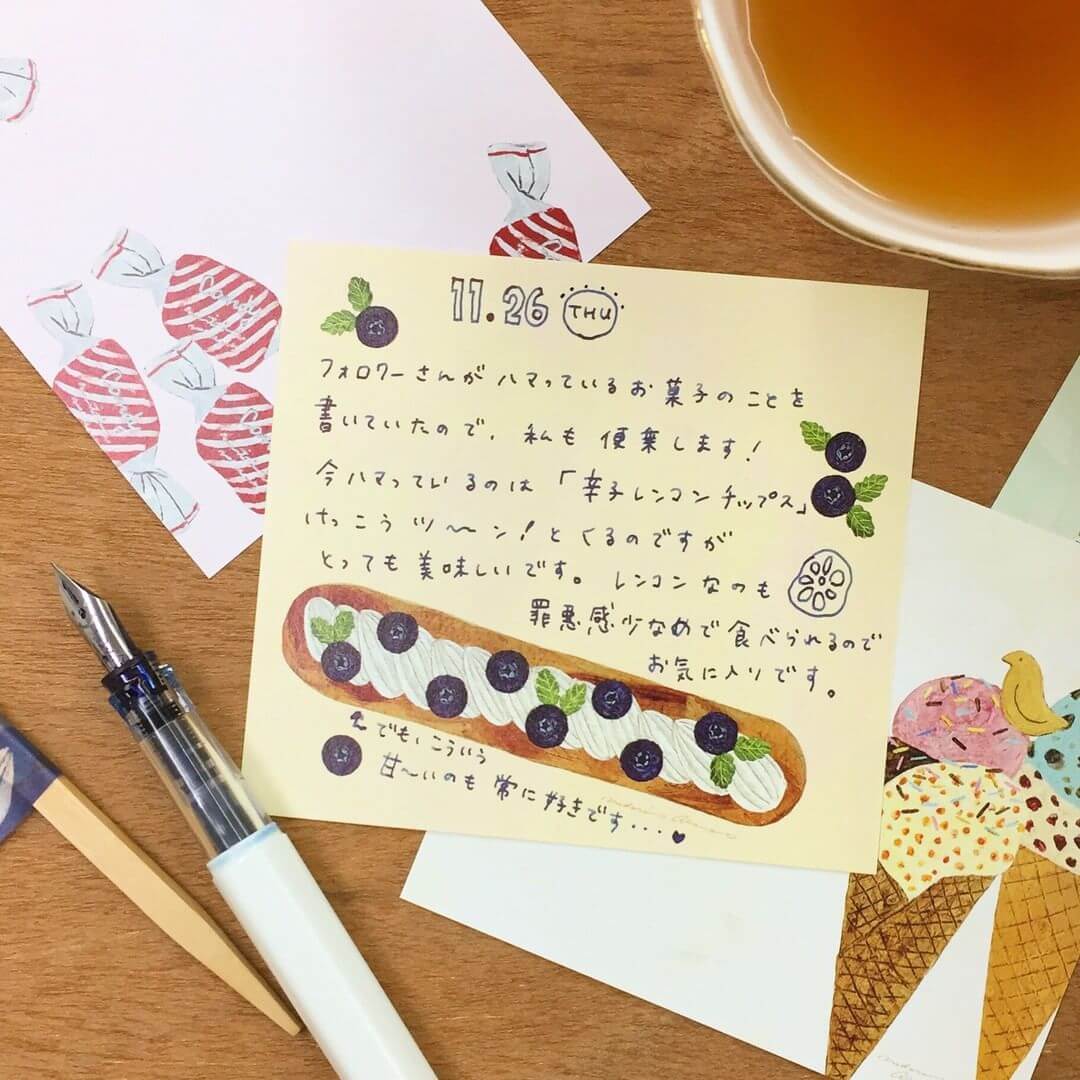 11.26 THU
フォロワーさんがハマっているお菓子のことを
書いていたので、私も便乗します!
今ハマっているのは「辛子レンコンチップス」
けっこうツ〜ン!とくるのですが
とっても美味しいです。レンコンなのも
罪悪感少なめで食べられるので
お気に入りです。
でも、こういう
甘〜いのも常に好きです・・・
Candy
Candy
Candy